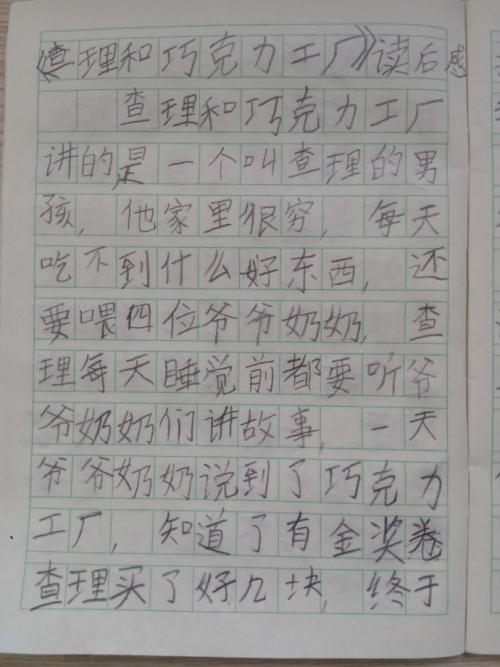 《查理和巧克力工厂》读后感
查理和巧克力工厂
讲的是一个叫查理的男
孩，他家里很穷，每天
吃不到什么好东西，还
要喂四位爷爷奶奶，查
理每天睡觉前都要听爷
爷奶奶们讲故事，一天
爷爷奶奶说到了巧克力
工厂，知道了有金奖卷
查理买了好几块，终于